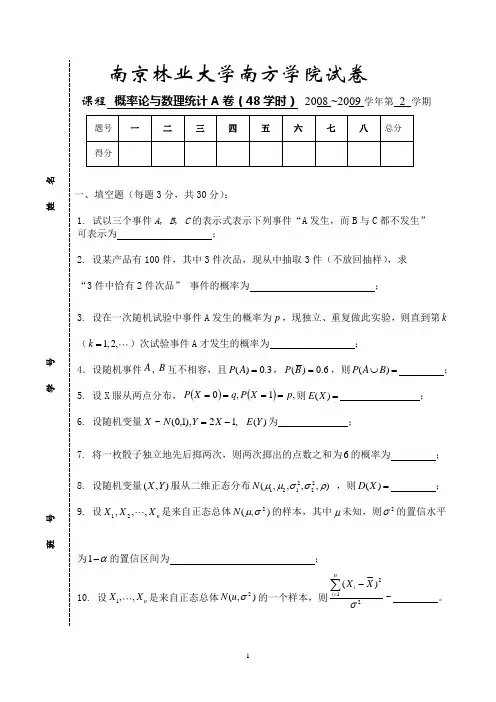 南京林业大学南方学院试卷
课程 概率论与数理统计A卷(48学时) 2008~2009学年第 2 学期
题号 一 二 三 四 五 六 七 八 总分
得分
姓 名
学 号
班 号
一、填空题(每题3分,共30分):
1. 试以三个事件A, B, C的表示式表示下列事件“A发生,而B与C都不发生”
可表示为 ;
2. 设某产品有100件,其中3件次品,现从中抽取3件(不放回抽样),求
“3件中恰有2件次品” 事件的概率为 ;
3. 设在一次随机试验中事件A发生的概率为p,现独立、重复做此实验,则直到第k
(k=1,2,⋯)次试验事件A才发生的概率为 ;
4.设随机事件A, B互不相容,且P(A)=0.3,P(B̅)=0.6,则P(A∪B)= ;
5. 设X服从两点分布,P(X=0)=q,P(X=1)=p,则E(X)= ;
6. 设随机变量X~N(0,1),Y=2X−1, E(Y)为 ;
7. 将一枚骰子独立地先后掷两次,则两次掷出的点数之和为6的概率为 ;
8. 设随机变量(X,Y)服从二维正态分布N(μ₁,μ₂,σ₁²,σ₂²,ρ) ,则D(X)= ;
9. 设X₁,X₂,⋯,Xₙ是来自正态总体N(μ,σ²)的样本,其中μ未知,则σ²的置信水平
为1−α的置信区间为 ;
10. 设X₁,⋯,Xₙ是来自正态总体N(u,σ²)的一个样本,则 \frac{\sum_{i=1}^{n}(X_i-\overline{X})^2}{σ^2} ~ 。
1